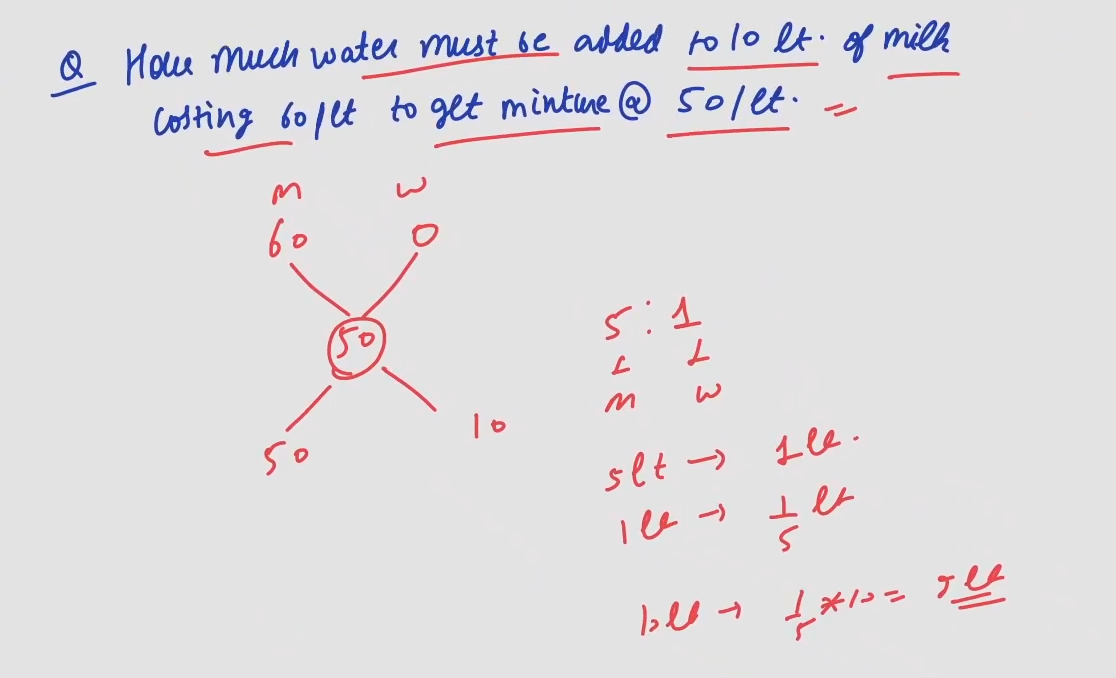 Q How much water must be added to 10 lt. of milk
costing 60/lt to get mixture @ 50/lt.
M W
60 0
50
50 10
5 : 1
M W
5lt → 1lt.
1lt → 1/5 lt
10lt → 1/5 * 10 = 2lt